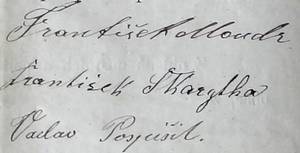 František Moudr
František Skarytka
Václav Pospíšil.